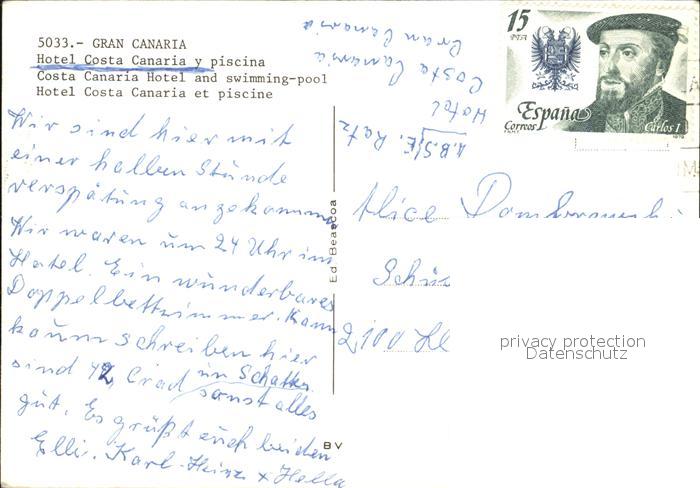 5033.- GRAN CANARIA
Hotel Costa Canaria y piscina
Costa Canaria Hotel and swimming-pool
Hotel Costa Canaria et piscine
Wir sind hier mit
einer halben Stunde
verspätung angekommen
Wir waren um 24 Uhr im
Hotel. Ein wunderbares
Doppelbettzimmer. Kann
kaum schreiben hier
sind 42 Grad im Schatten
sonst alles
gut. Es grüßt euch beiden
Elli. Karl-Heinz + Hella
Ed. Beascoa
BV
E. Ratz
Hotel
Costa Canaria
Gran Canaria
15
PTA
España
Correos
Carlos I
Alice
2100
privacy protection
Datenschutz